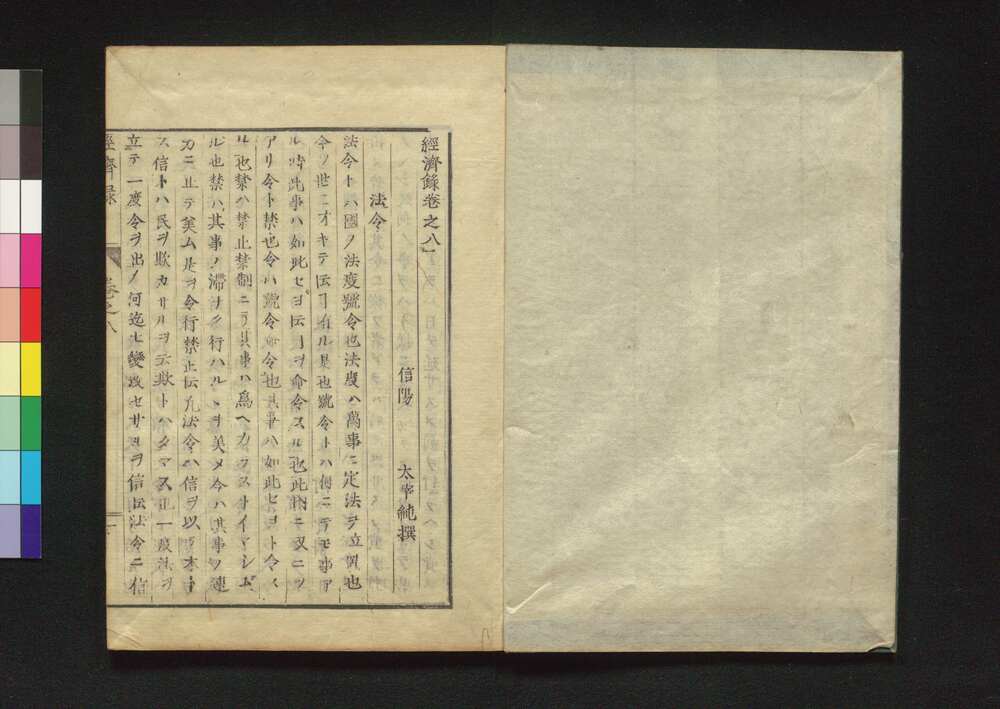 經濟錄卷之八
信陽 太宰純撰
法令
法令トハ國ノ法度號令也法度ハ萬事ニ定法ヲ立置也
今ノ世ニオキテ云有ル是也號令トハ何ニテモ事ア
ル時此事ハ如此セヨ云ヿヲ命令スル也此內ニ又ニツ
アリ令ト禁也令ハ號令命令也其事ハ如此セヨト令ス
ル也禁ハ禁止禁制ニテ其事ハ爲ヘカラストイマシム
ル也禁ハ其事ノ滯ナク行ハルヽヲ美メ令ハ其事ノ速
カニ止テ美ム是ヲ令行禁止云凡法令ハ信ヲ以テ本ト
ス信トハ民ヲ欺カサルヲ云欺トハタマス也一度法ヲ
立テ一度令ヲ出ノ何迄モ變改セサルヲ信云法令ニ信
經濟錄 卷之八